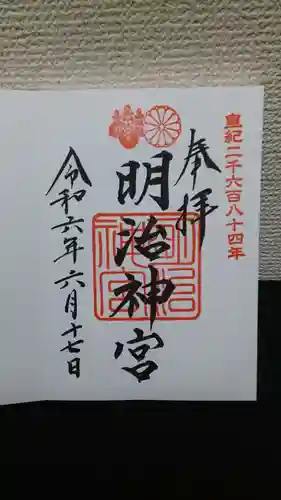 皇紀二千六百八十四年
奉拝
明治神宮
明治神宮
令和六年六月十七日